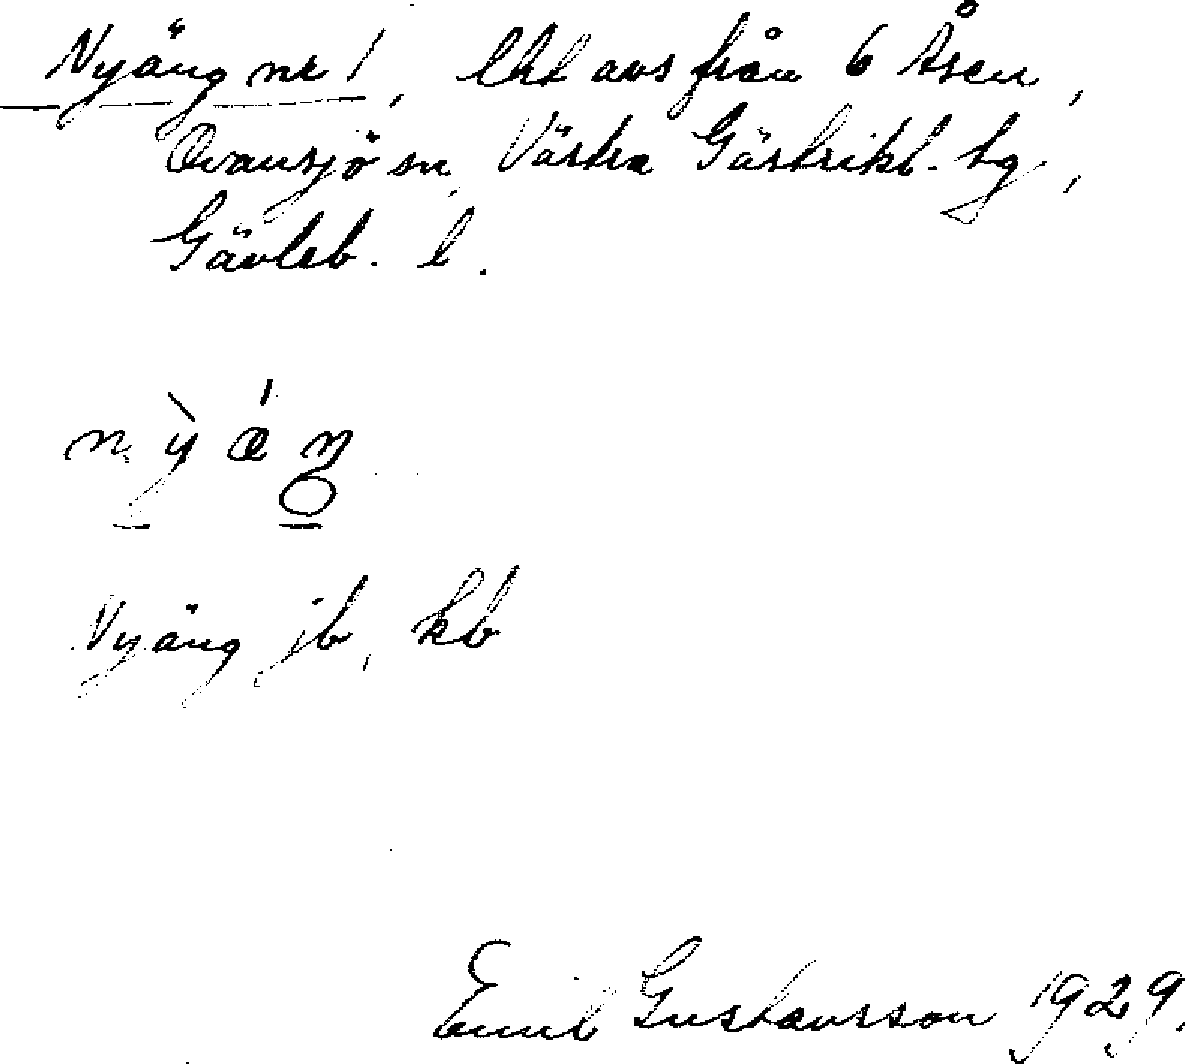 Nyäng nr 1, lht avs från 6 Åsen,
Ovansjö sn, Västra Gästrikl. tg,
Gävleb. l.
n ỳ̠ ǽ ŋ̠
Nyäng jb, kb
Emil Gustavsson 1929.